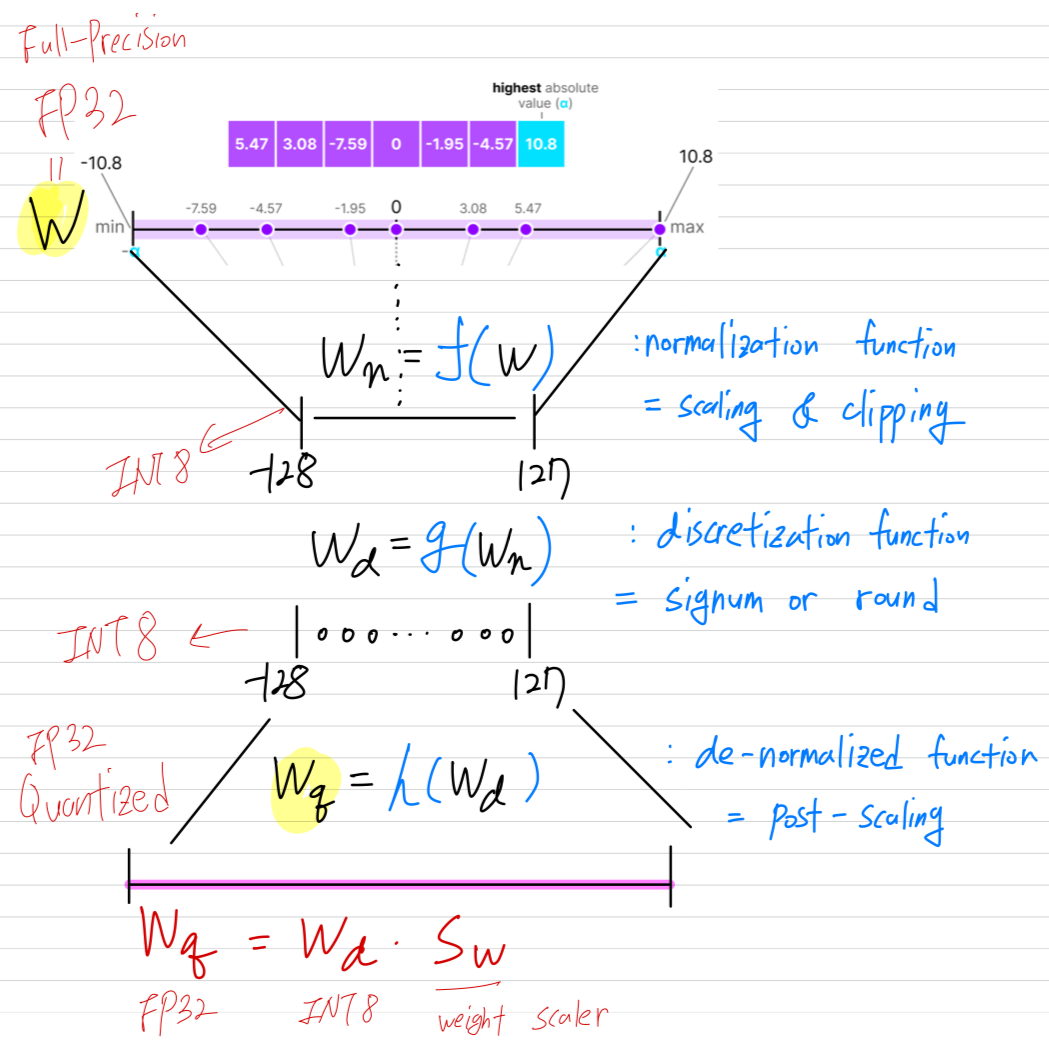 Full-Precision
FP32
highest absolute
value (α)
5.47 3.08 -7.59 0 -1.95 -4.57 10.8
= -10.8 10.8
W min -7.59 -4.57 -1.95 0 3.08 5.47 max
-α α
Wn = f(W) : normalization function
= scaling & clipping
INT8 -128 127
Wd = g(Wn) : discretization function
= signum or round
INT8 ← 000...000
-128 127
FP32
Quantized
Wq = h(Wd) : de-normalized function
= post-scaling
Wq = Wd · Sw
FP32 INT8 weight scaler